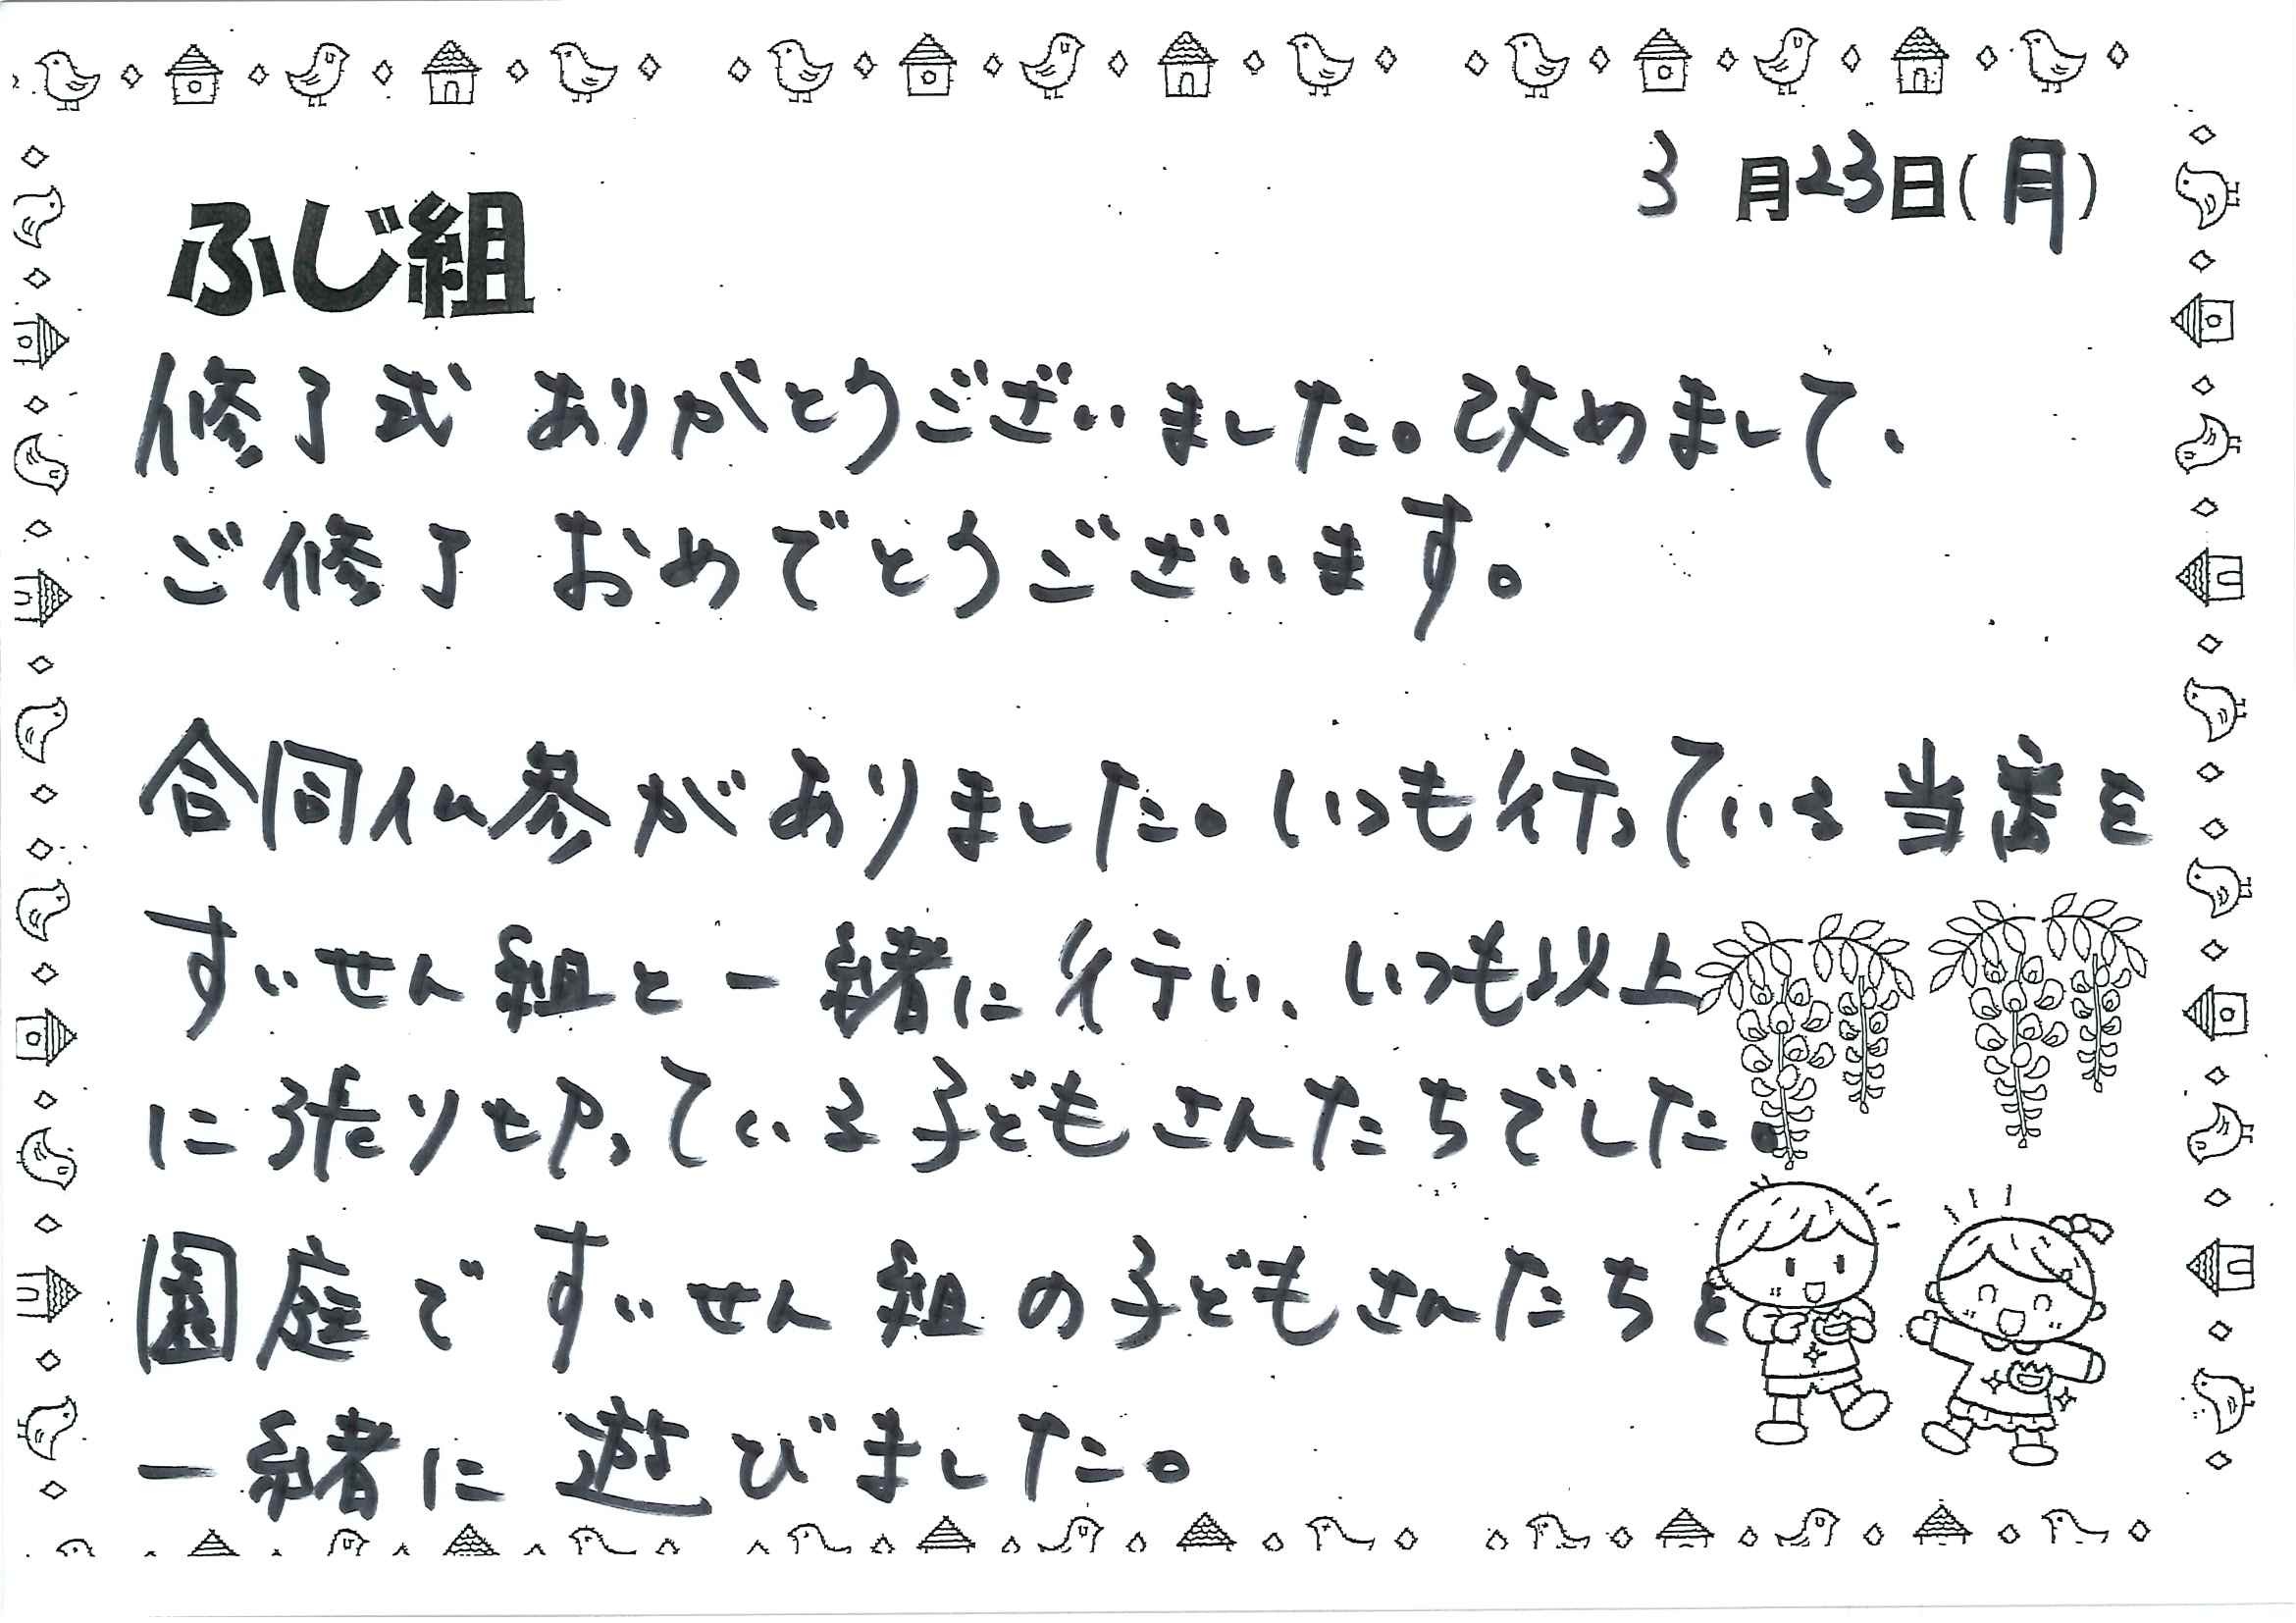 3月23日(月)
ふじ組
修了式 ありがとうございました。改めまして、
ご修了 おめでとうございます。
合同仏参がありました。いつも行っている当番を
すいせん組と一緒に行い、いつも以上
に張り切っている子どもさんたちでした。
園庭ですいせん組の子どもさんたちと
一緒に遊びました。